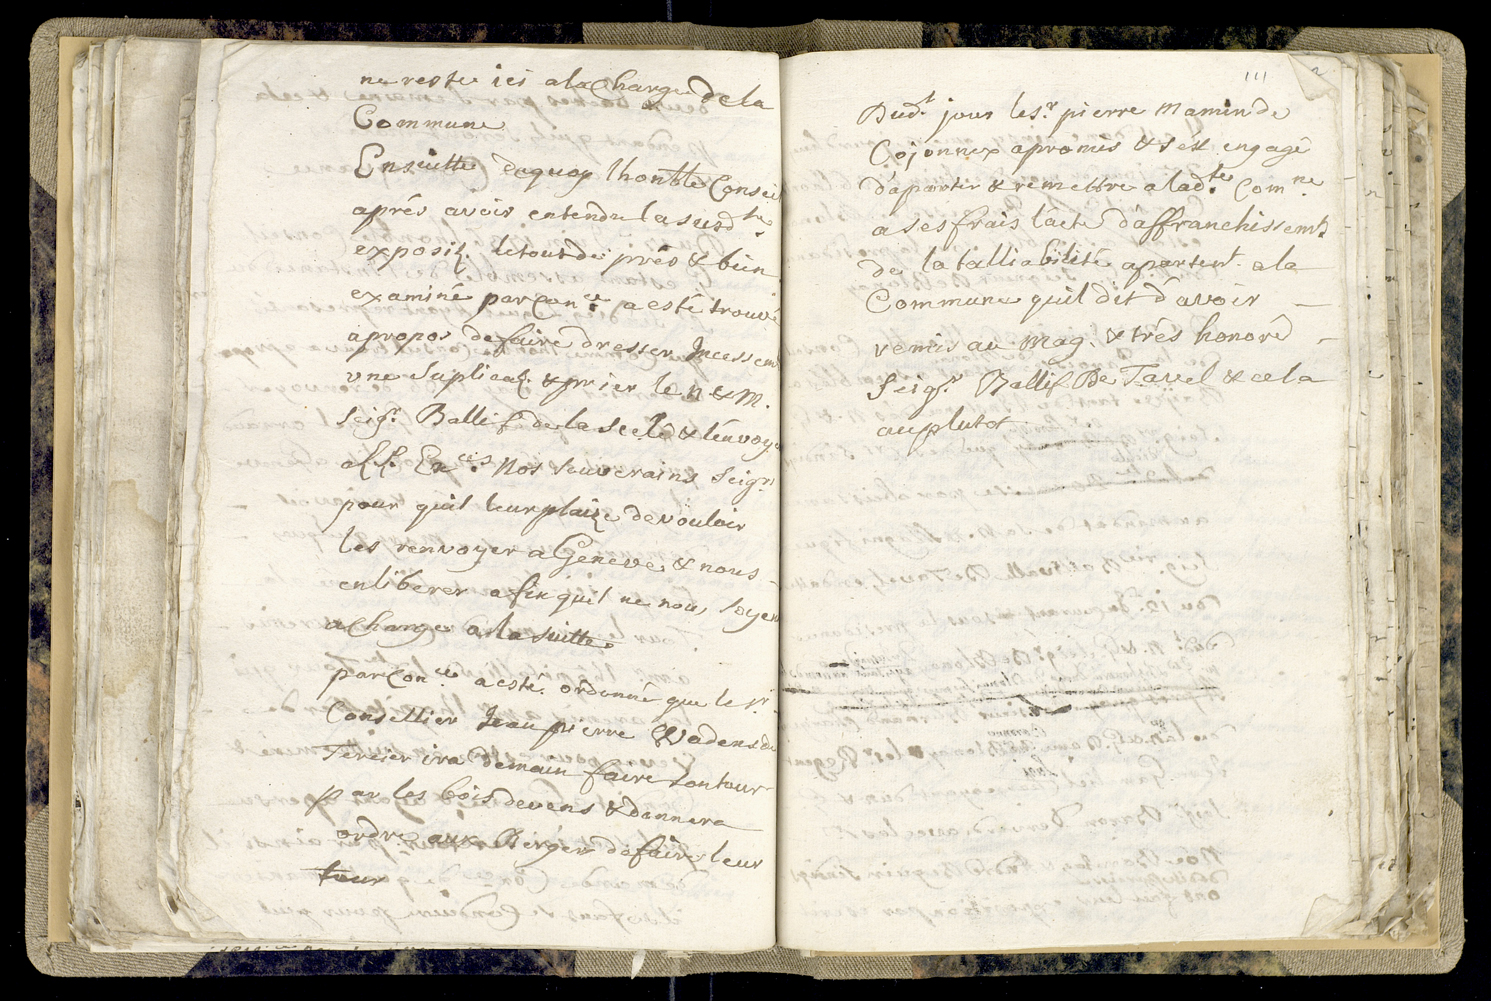 ne reste ici a la Charge de la
Commune
Ensuitte dequoy lhon.ble Conseil
aprés avoir entendu la susd.te
exposit. le tout de prés & bien
examiné par Con.ce a esté trouvé
apropos de faire dresser Incessem.
une Suplicat. & prier le n & M.
Seig.r Ballif de la Sceler & lénvoyer
a LL. Ex.ces Nos Souverains Seig.rs
pour quil leur plaize de vouloir
les renvoyer a Geneve & nous
en liberer afin quil ne nous soyent
a Charge a la suitte.
par Con.ce a esté ordonné que le S.r
Conseillier Jean pierre Wadens du
Tercier ira demain faire son tour
par les bois devens & donnera
ordre aux Bergers de faire leur
tour
111
Dud.t jour le s.r pierre Mamin de
Cojonnex a promis & s'est engagé
d'aporter & remettre a lad.te Com.ne
a ses frais l'acte d'affranchissem.t
de la talliabilité apartent. a la
Commune qu'il dit d'avoir
remis au Mag. & trés honoré
Seig.r Ballif De Tavel & cela
au plutot